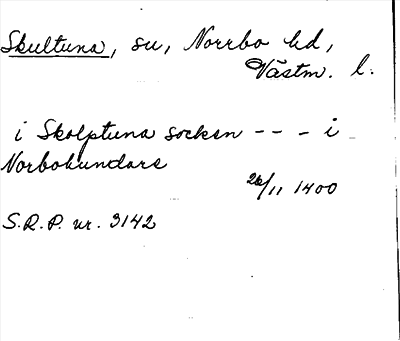 Skultuna, su, Norrbo hd,
Västm. l.
i Skolptuna socken -- - i
Norbohundare
26/11 1400
S.R.P. nr. 3142